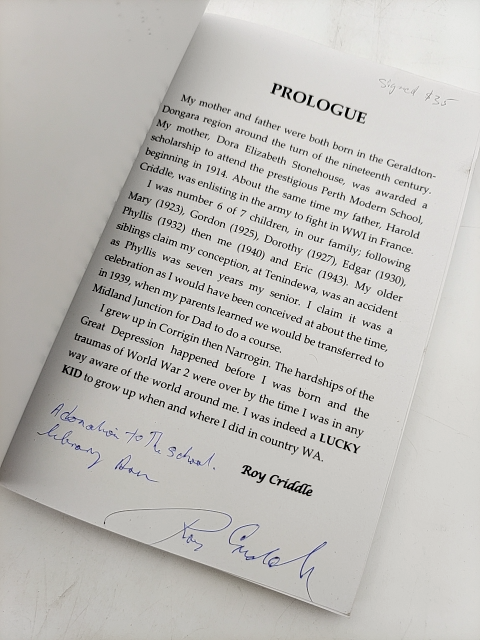 Signed $35
PROLOGUE
My mother and father were both born in the Geraldton-
Dongara region around the turn of the nineteenth century.
My mother, Dora Elizabeth Stonehouse, was awarded a
scholarship to attend the prestigious Perth Modern School,
beginning in 1914. About the same time my father, Harold
Criddle, was enlisting in the army to fight in WWI in France.
I was number 6 of 7 children, in our family; following
Mary (1923), Gordon (1925), Dorothy (1927), Edgar (1930),
Phyllis (1932) then me (1940) and Eric (1943). My older
siblings claim my conception, at Tenindewa, was an accident
as Phyllis was seven years my senior. I claim it was a
celebration as I would have been conceived at about the time,
in 1939, when my parents learned we would be transferred to
Midland Junction for Dad to do a course.
I grew up in Corrigin then Narrogin. The hardships of the
Great Depression happened before I was born and the
traumas of World War 2 were over by the time I was in any
way aware of the world around me. I was indeed a LUCKY
KID to grow up when and where I did in country WA.
Roy Criddle
A donation to The School.
library
Roy Criddle